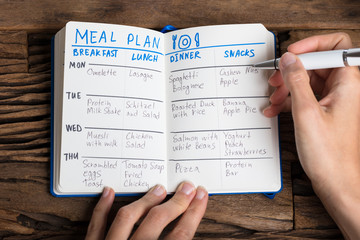 MEAL PLAN
BREAKFAST LUNCH DINNER SNACKS
MON
Omelette Lasagna Spaghetti Bolognese Cashew Nuts
Apple
TUE
Protein Milk Shake Schnitzel and Salad Roasted Duck with Rice Banana
Apple
WED
Muesli with milk Chicken Salad Salmon with white Beans Yoghurt
Peach
Strawberries
THU
Scrambled eggs Toast Tomato Soup Chicken Pizza Protein Bar